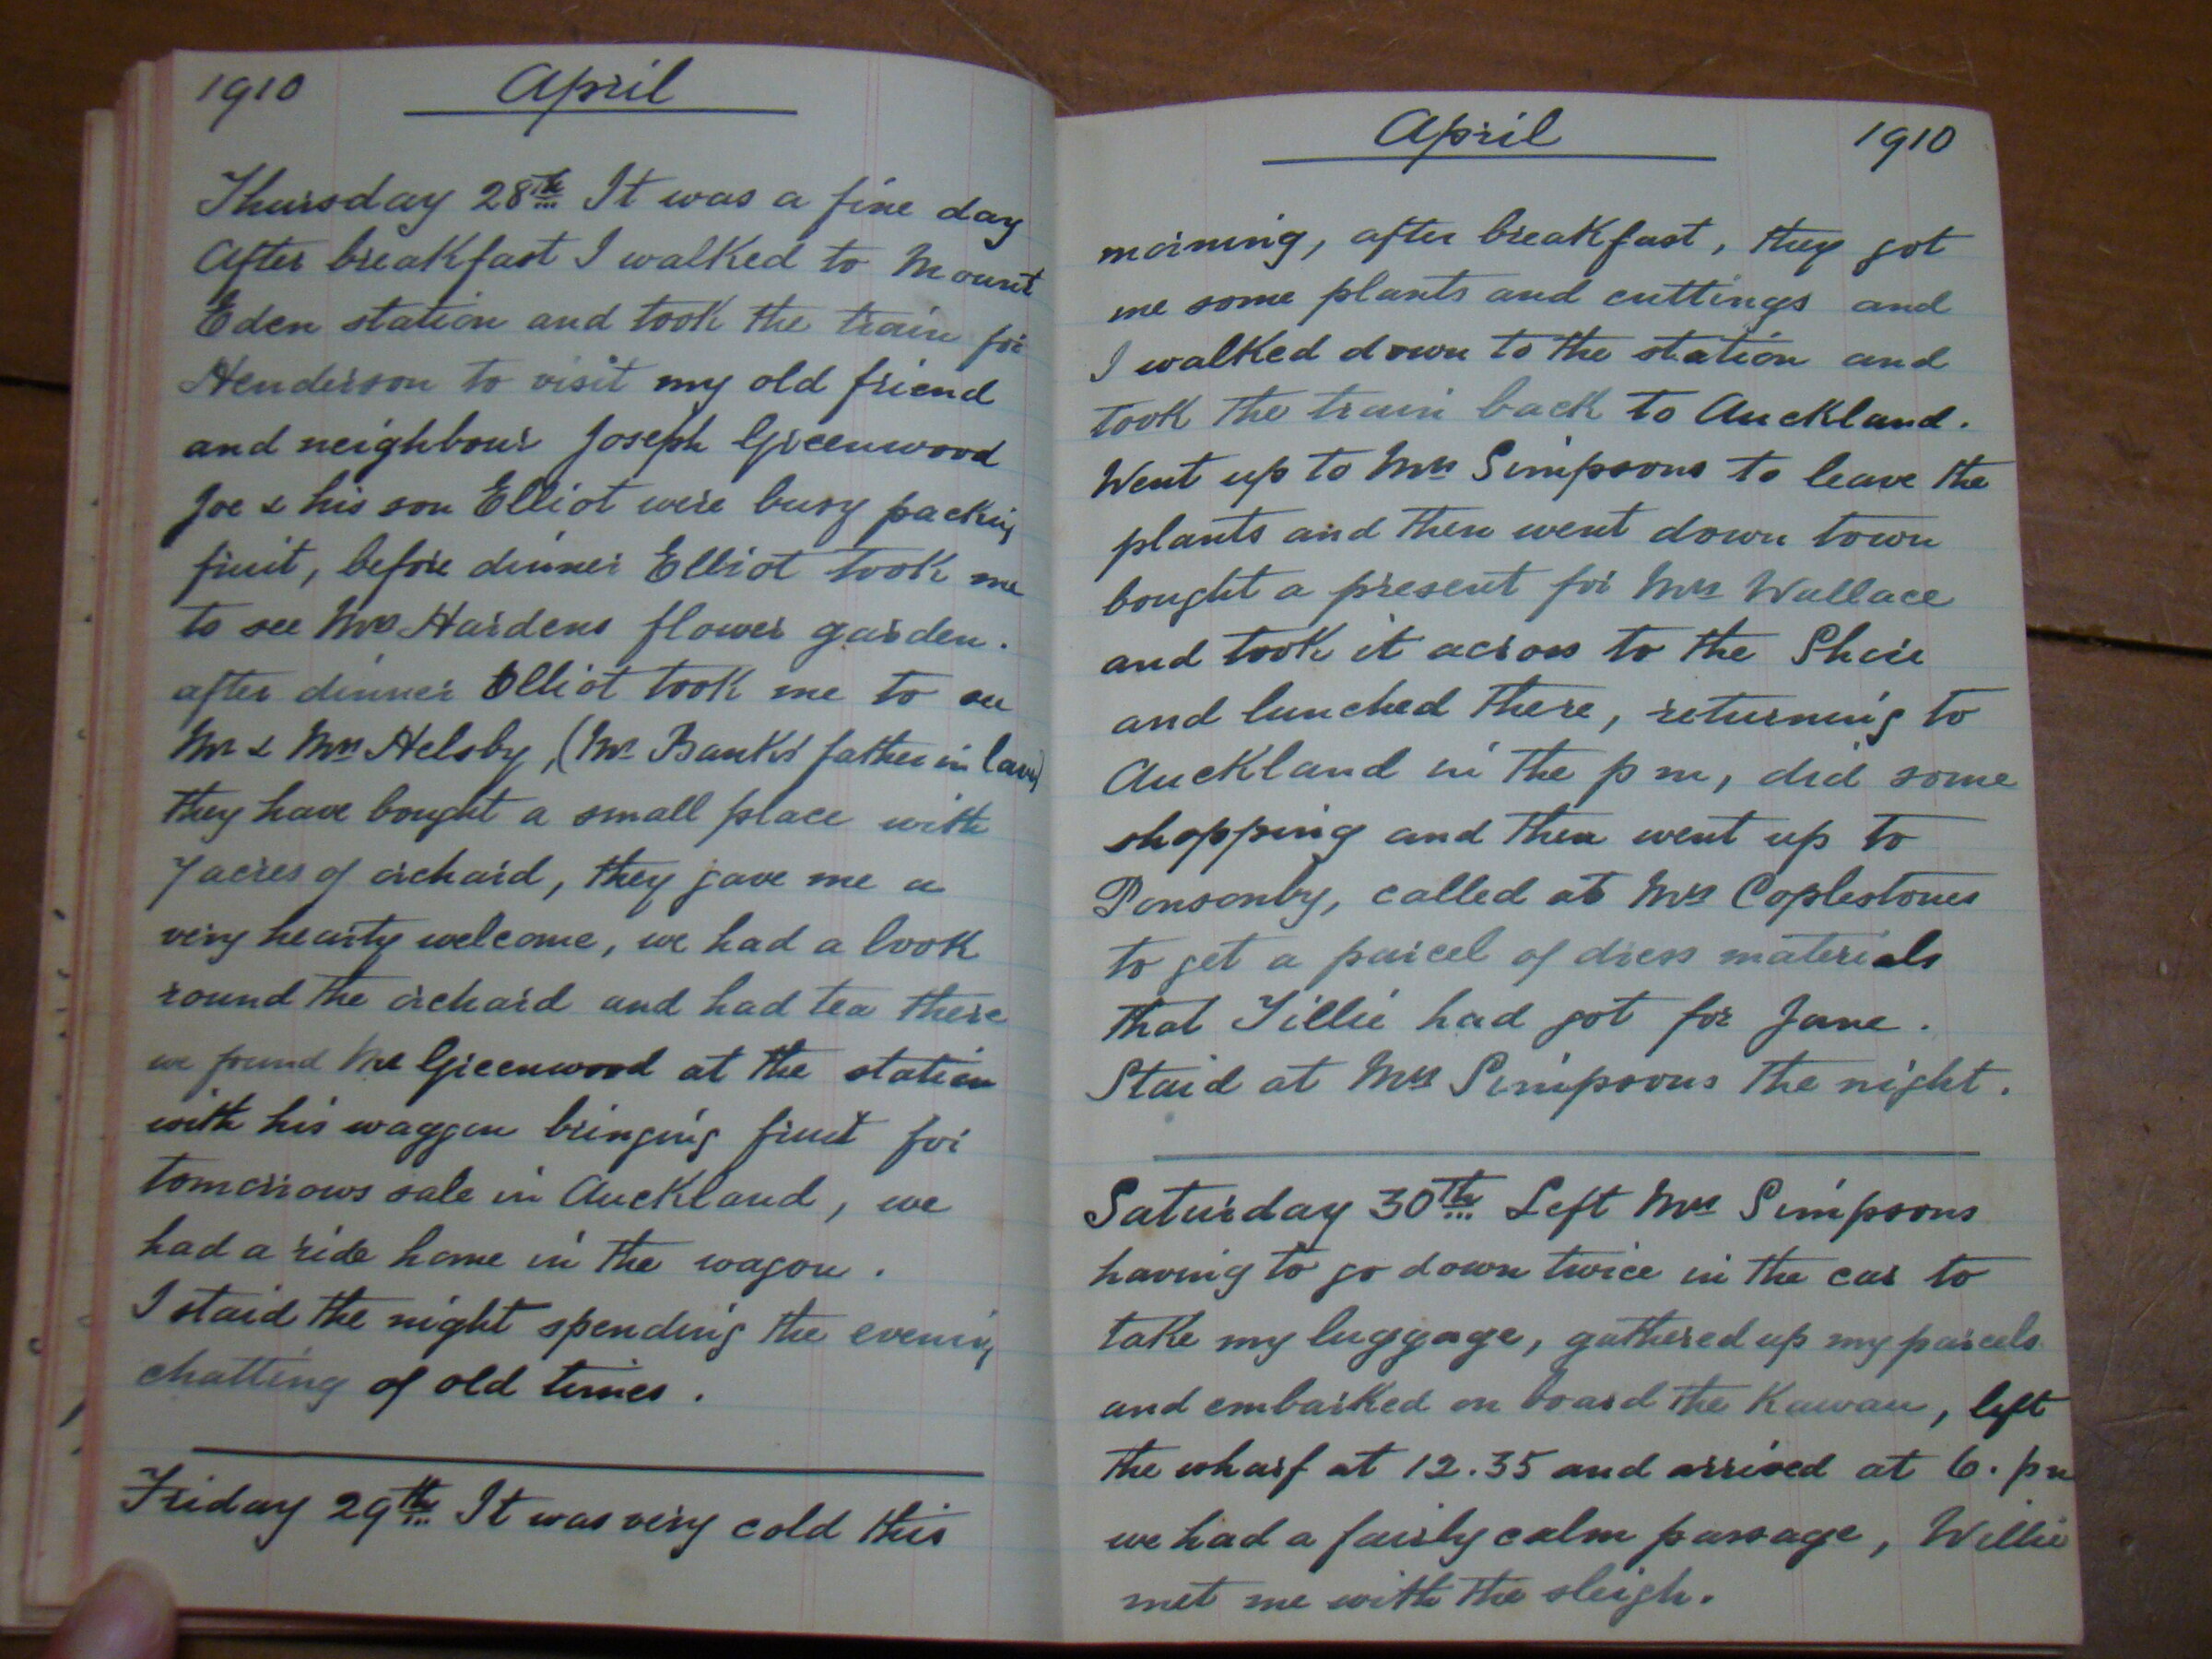 1910 April
Thursday 28th It was a fine day
After breakfast I walked to Mount
Eden station and took the train for
Henderson to visit my old friend
and neighbour Joseph Greenwood
Joe & his son Elliot were busy packing
fruit, before dinner Elliot took me
to see Mrs Hardens flower garden.
after dinner Elliot took me to see
Mr & Mrs Helsby, (Mr Banks father in law)
they have bought a small place with
7 acres of orchard, they gave me a
very hearty welcome, we had a look
round the orchard and had tea there
we found Mr Greenwood at the station
with his waggon bringing fruit for
tomorrows sale in Auckland, we
had a ride home in the wagon.
I staid the night spending the evening
chatting of old times.
Friday 29th It was very cold this
April 1910
morning, after breakfast, they got
me some plants and cuttings and
I walked down to the station and
took the train back to Auckland.
Went up to Mrs Simpsons to leave the
plants and then went down town
bought a present for Mrs Wallace
and took it across to the Shore
and lunched there, returning to
Auckland in the p m, did some
shopping and then went up to
Ponsonby, called at Mrs Coplestones
to get a parcel of dress materials
that Tillie had got for Jane.
Staid at Mrs Simpsons the night.
Saturday 30th Left Mrs Simpsons
having to go down twice in the car to
take my luggage, gathered up my parcels
and embarked on board the Kawau, left
the wharf at 12.35 and arrived at 6. pm
we had a fairly calm passage, Willie
met me with the sleigh.